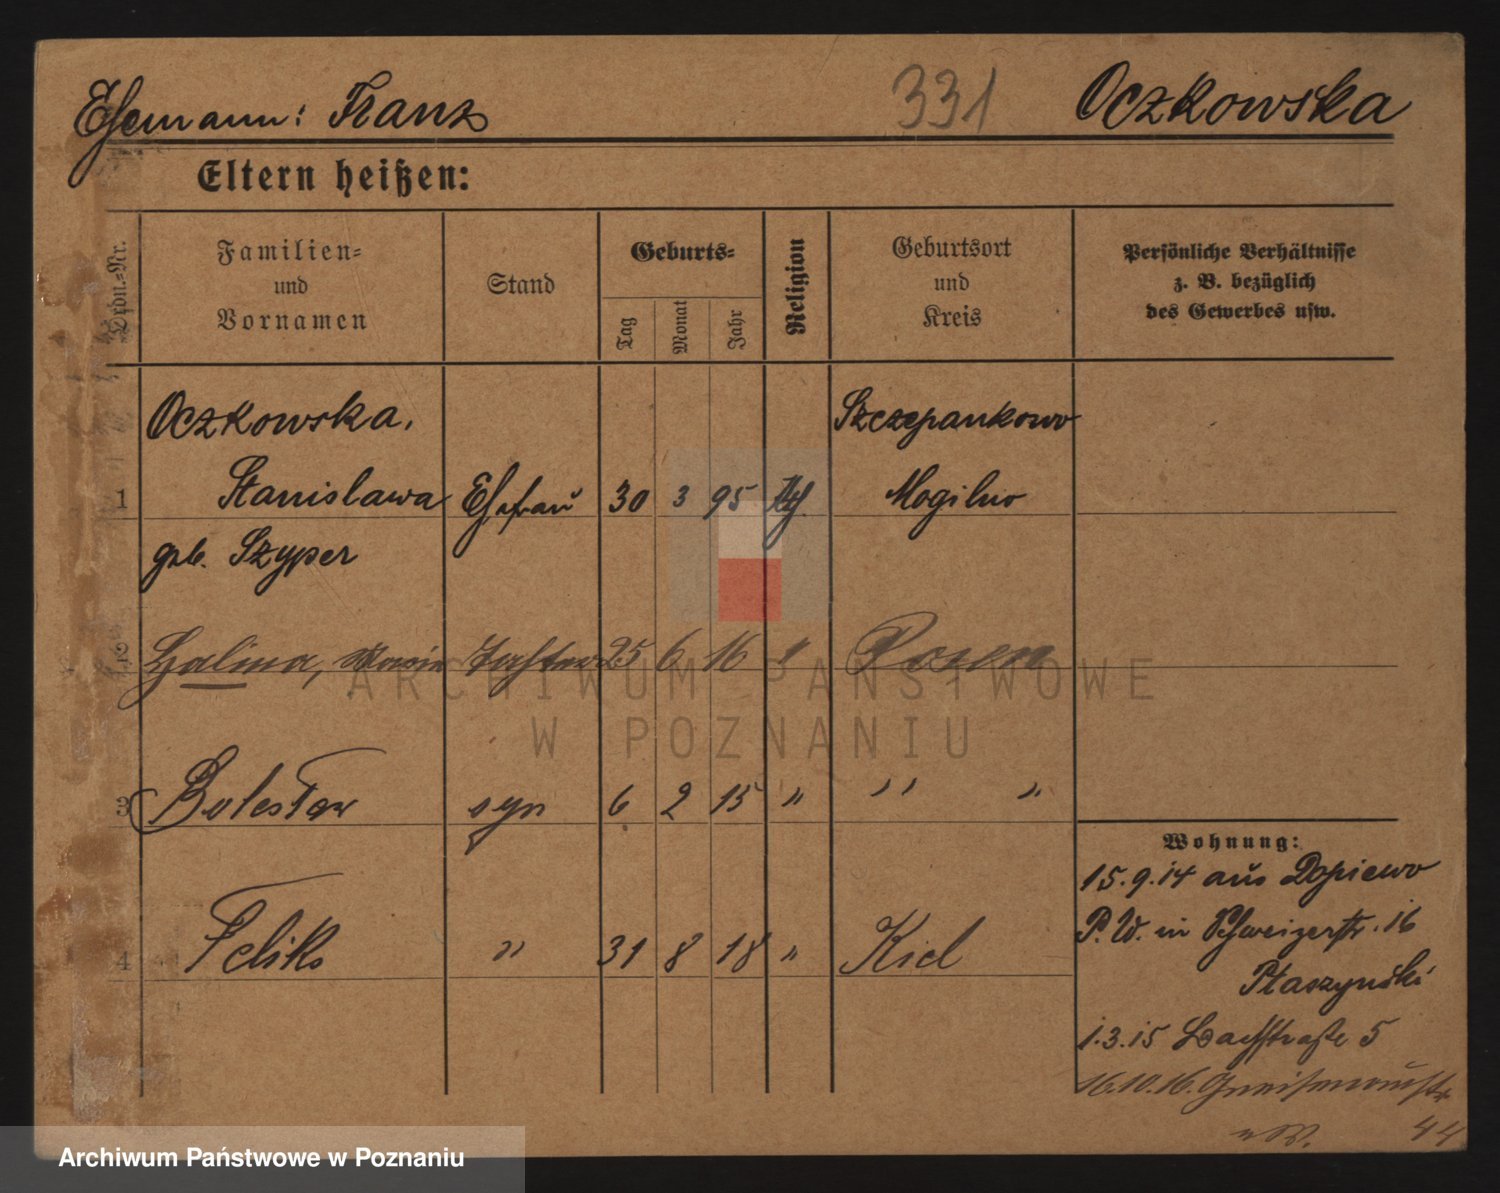 Ehemann: Franz 331 Oczkowska
Eltern heißen:
Ordn.=Nr.
Familien=
und
Vornamen
Stand
Geburts=
Tag
Monat
Jahr
Religion
Geburtsort
und
Kreis
Persönliche Verhältnisse
z. B. bezüglich
des Gewerbes usw.
Oczkowska, Szczepankowo
1 Stanislawa Ehefrau 30 3 95 Mogilno
geb. Szyper
2 Halina, Maria Tochter 25 6 16 " Posen
3 Bolesław syn 6 2 15 " " "
4 Feliks " 31 8 18 " Kiel
Wohnung:
15.9.14 aus Dopiewo
P. W. in Schweizerstr. 16
Ptaszyński
1.3.15 Bachstraße 5
16.10.16. Gneisenaustr.
44
ARCHIWUM PAŃSTWOWE
W POZNANIU
Archiwum Państwowe w Poznaniu